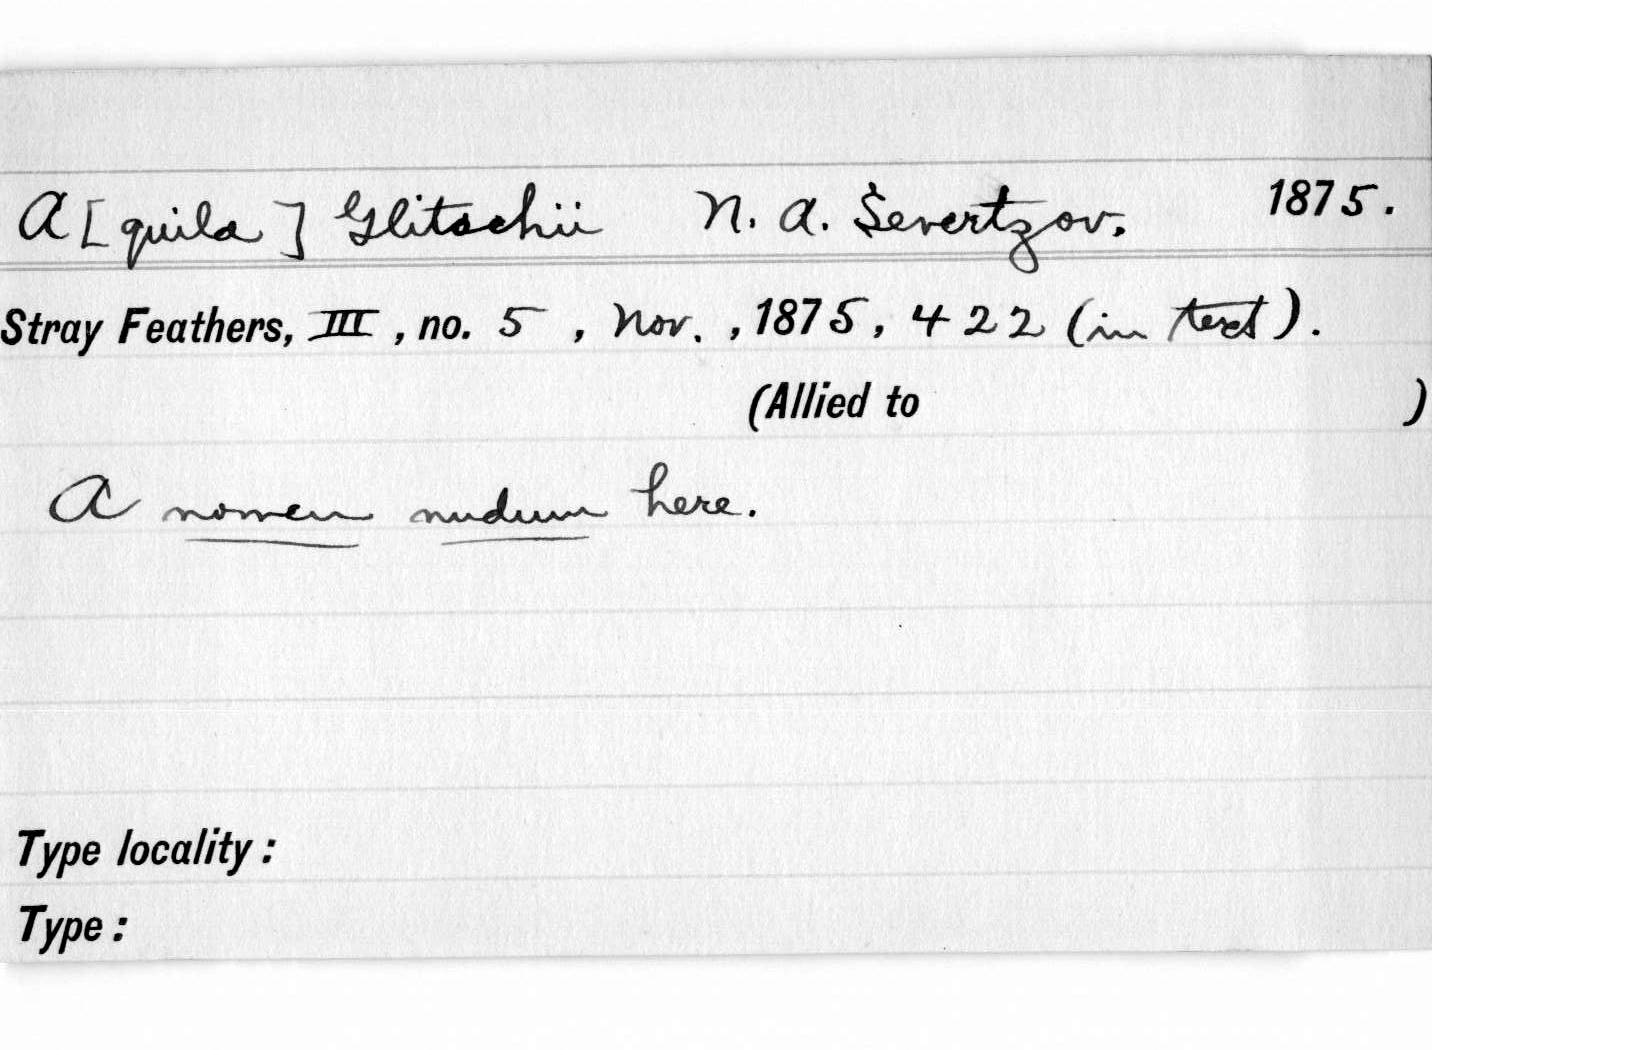 A[quila] Glitschii N. A. Severtzov. 1875.
Stray Feathers, III, no. 5, Nov., 1875, 422 (in text).
(Allied to )
A nomen nudum here.
Type locality:
Type: